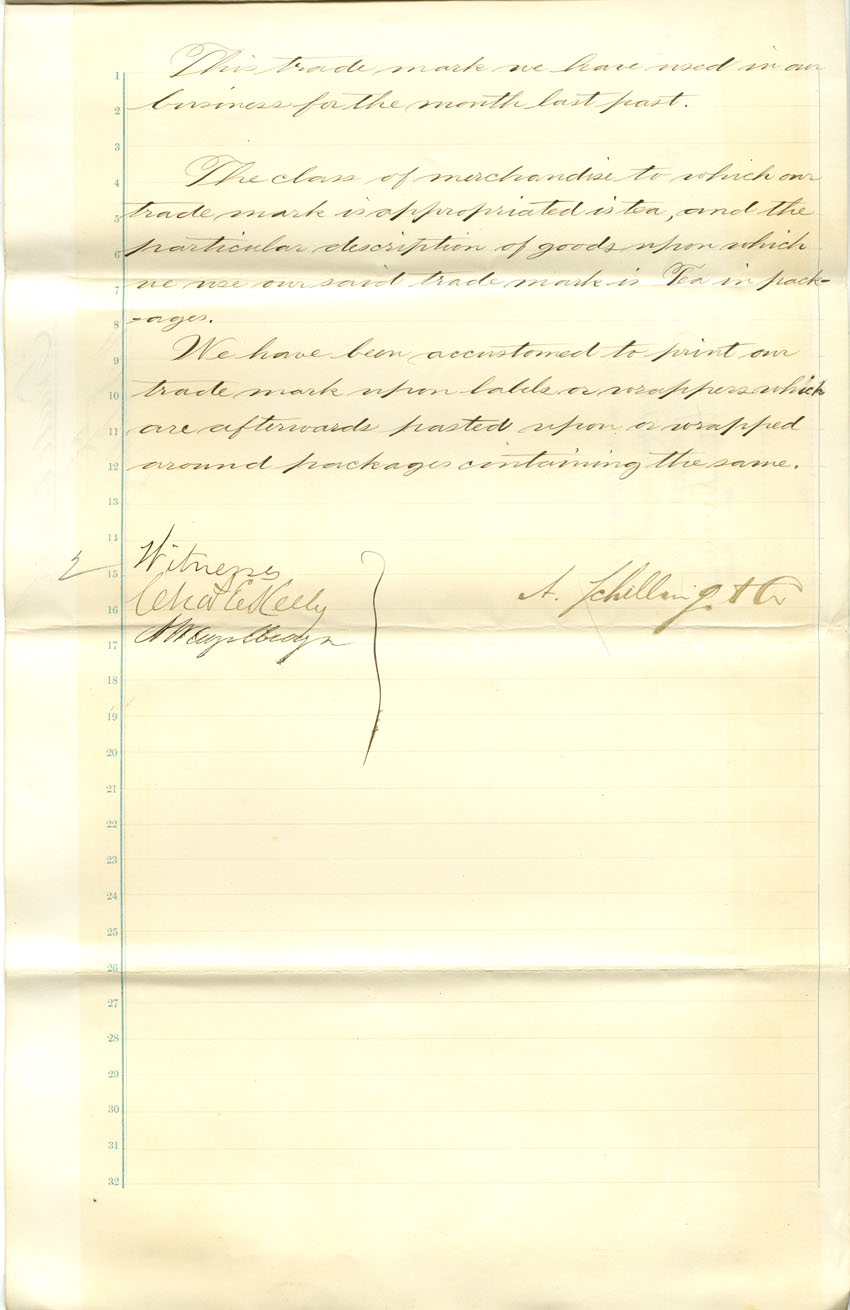 This trade mark we have used in our
1
business for the month last past.
2
3
The class of merchandise to which our
4
trade mark is appropriated is tea, and the
5
particular description of goods upon which
6
we use our said trade mark is Tea in pack-
7
-ages.
8
We have been accustomed to print our
9
trade mark upon labels or wrappers which
10
are afterwards pasted upon or wrapped
11
around packages containing the same.
12
13
14
Witnesses
15
Chas E Kelly
A. Schilling & Co
16
17
18
19
20
21
22
23
24
25
26
27
28
29
30
31
32